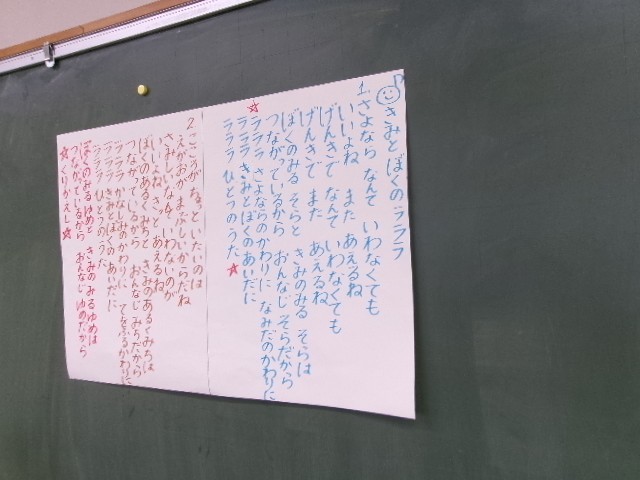 きみとぼくのラララ
1. さよなら なんて いわなくても
いいよね また あえるね
げんきで なんて いわなくても
げんきで また あえるね
ぼくのみる そらと きみのみる そらは
つながっているから おんなじ そらだから
☆ラララ さよならのかわりに なみだのかわりに
ラララ きみとぼくのあいだに
ラララ ひとつのうた☆
2. こころが ちょっといたいのは
えがおが まぶしいからだね
さみしいなんて いわないのが
いいよね きっと あえるね
ぼくのあるくみちと きみのあるくみちは
つながっているから おんなじみちだから
ラララ かなしみのかわりに てをふるかわりに
ラララ きみとぼくのあいだに
ラララ ひとつのうた
ぼくのみるゆめと きみのみるゆめは
つながっているから おんなじ ゆめだから
☆くりかえし☆